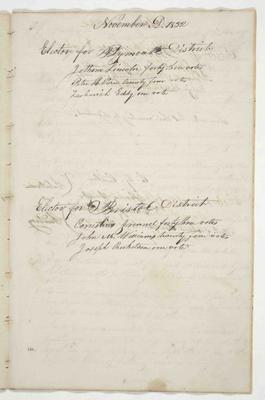 November D. 1832
Elector for Plymouth District
Jotham Lincoln forty three votes
twenty four votes
Zechariah Eddy one vote
Elector for Bristol C. District
Cornelius Grinnel forty three votes
John M. Williams twenty four votes
Joseph one vote